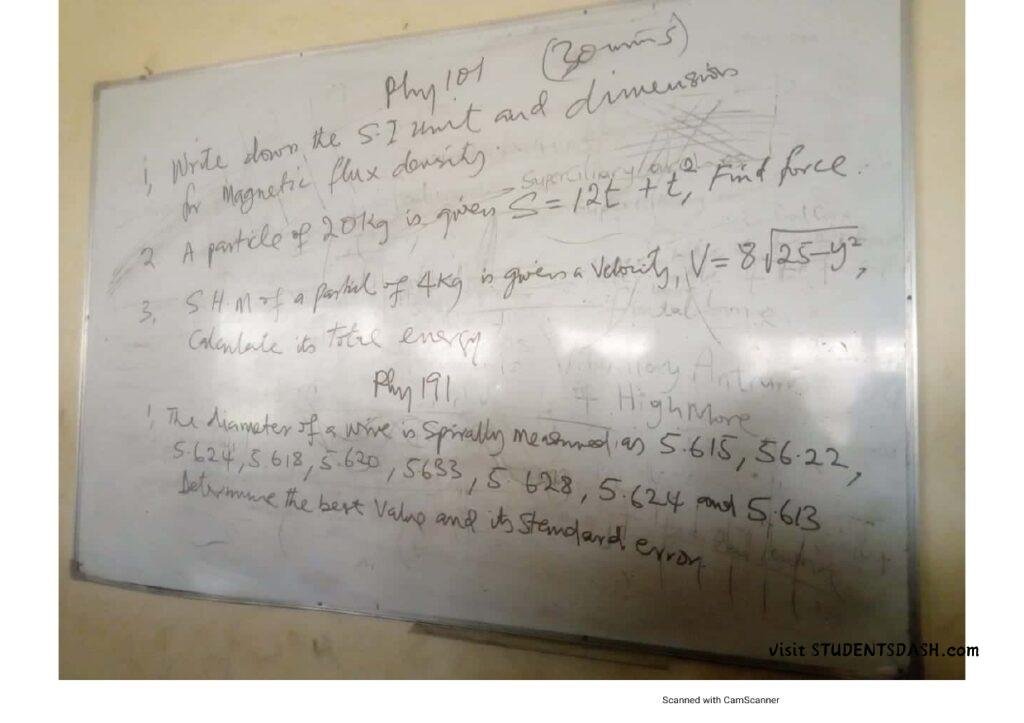 Phy 101 (30 mins)
1, Write down the S.I Unit and dimension
for Magnetic flux density.
2 A particle of 20kg is given S = 12t + t², Find force.
3, S.H.M of a partial of 4kg is given a Velocity, V = 8√25-y²,
Calculate its total energy
Phy 191
1, The diameter of a wire is Spirally measured as 5.615, 56.22,
5.624, 5.618, 5.620, 5633, 5.628, 5.624 and 5.613
Determine the best Value and its Standard error.
High More
visit STUDENTSDASH.com
Scanned with CamScanner